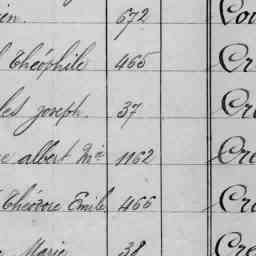 672 Cou
Théophile 465 Cr
les joseph. 37 Cre
albert Mie 1162 Cre
Théodore Emile 466 Cre
Marie 38 Cre